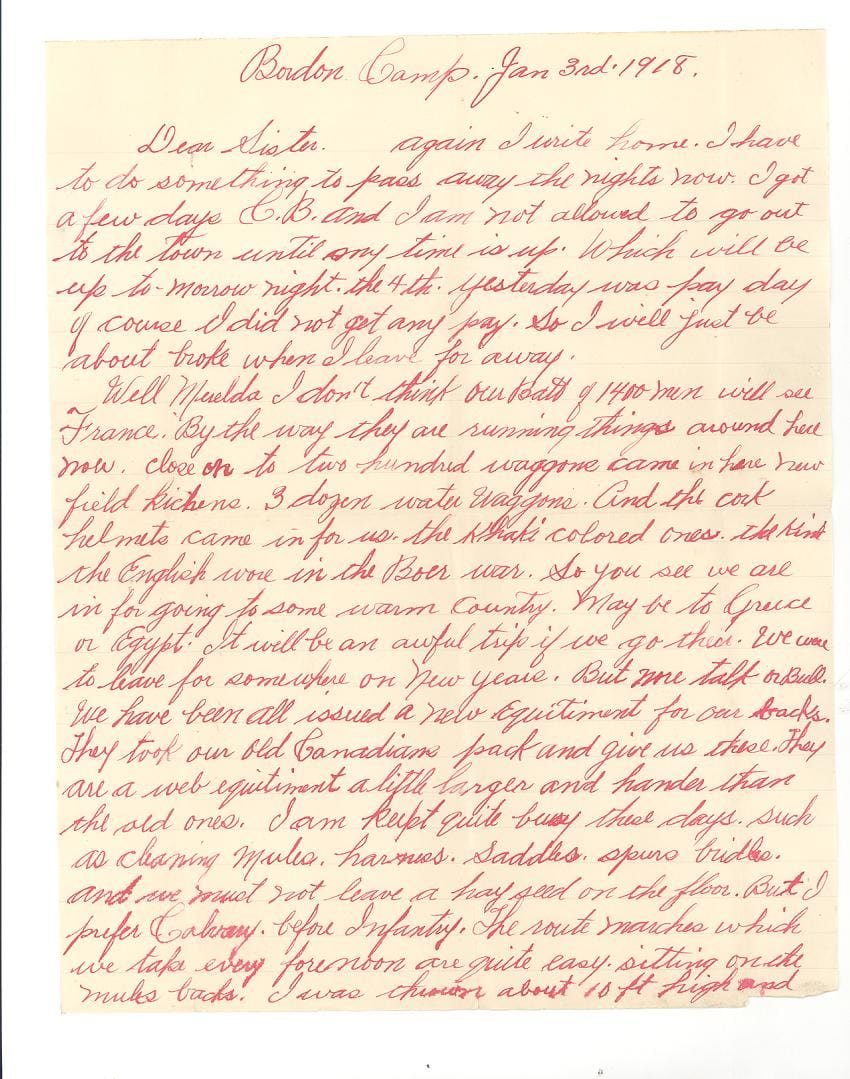 Bordon Camp. Jan 3rd. 1918.
Dear Sister. again I write home. I have
to do something to pass away the nights now. I got
a few days C.B. and I am not allowed to go out
to the town until my time is up. Which will be
up to-morrow night. the 4th. yesterday was pay day
of course I did not get any pay. So I will just be
about broke when I leave for away.
Well I don't think our Batt of 1400 men will see
France. By the way they are running things around here
now. close on to two hundred waggons came in here new
field kichens. 3 dozen water Waggons. And the cork
helmets came in for us. the Khaki colored ones. the kind
the English wore in the Boer war. So you see we are
in for going to some warm country. May be to Greece
or Egypt. It will be an awful trip if we go their. We were
to leave for somewhere on New years. But more talk or Bull.
We have been all issued a new equitiment for our backs.
They took our old Canadians pack and give us these. They
are a web equitiment a little larger and hander than
the old ones. I am keept quite busy these days. such
as cleaning Mules. harness. Saddles. spurs bridles.
and we must not leave a hay seed on the floor. But I
prefer Calvary. before Infantry. The route marches which
we take every forenoon are quite easy. sitting on the
mules backs. I was thrown about 10 ft high and